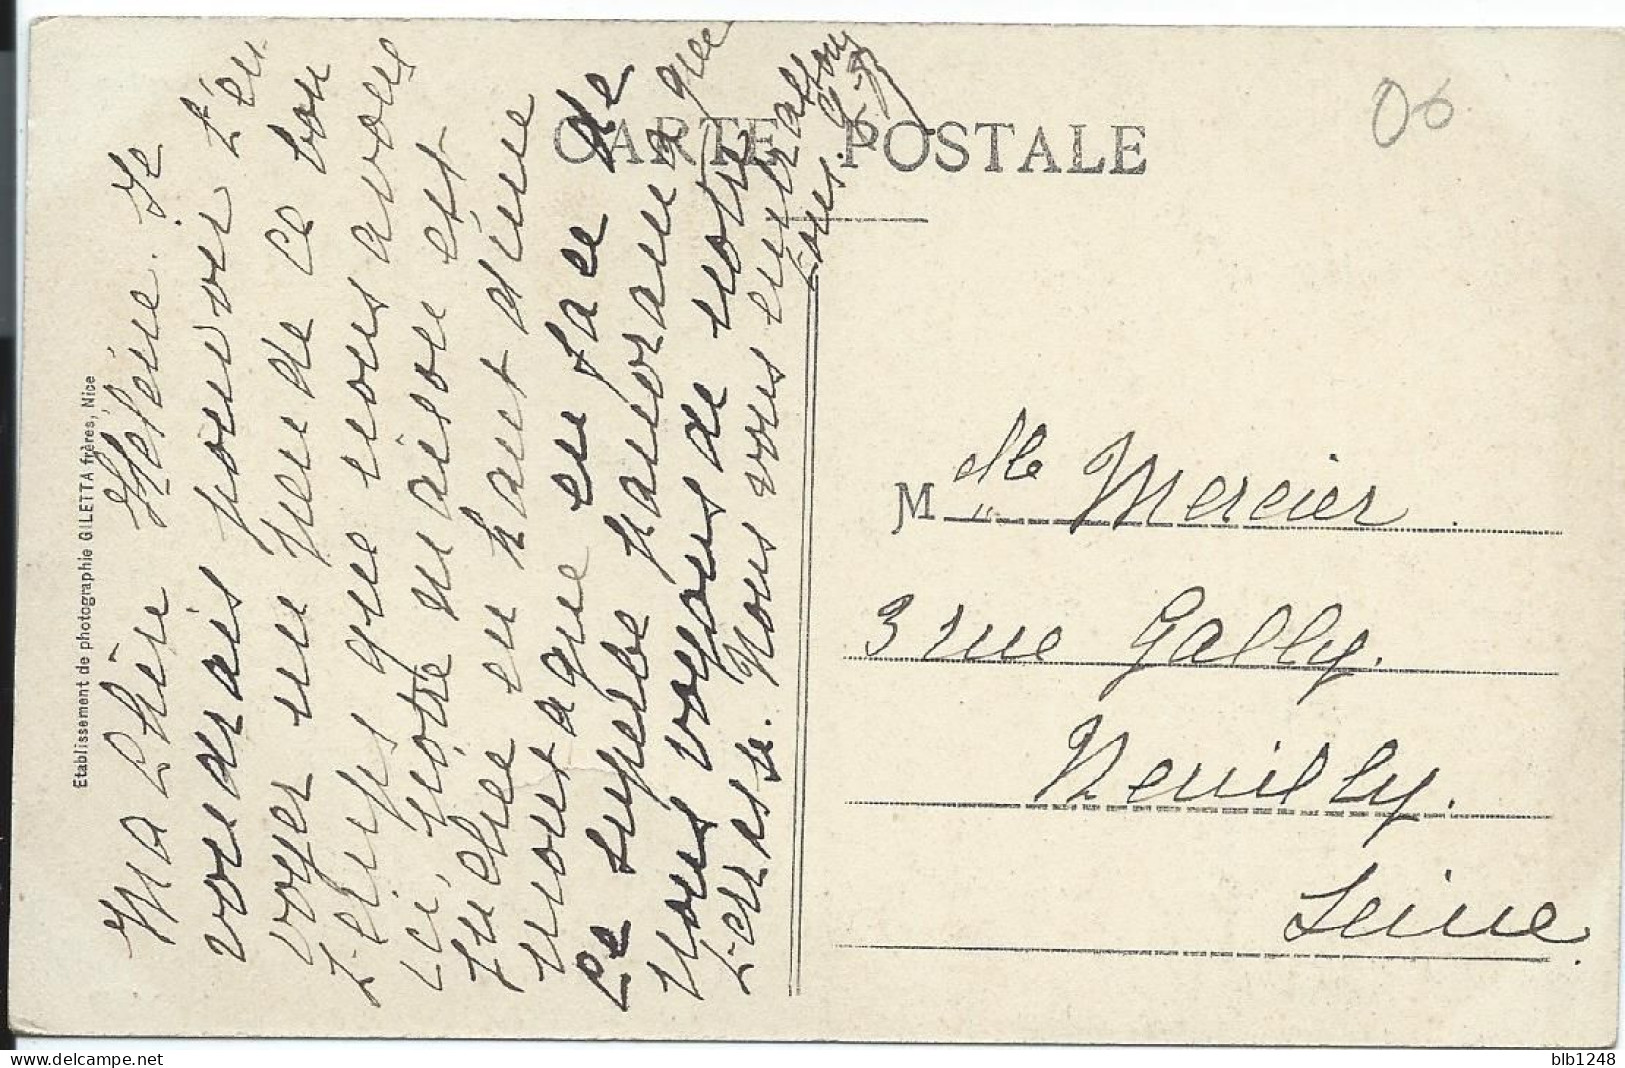 CARTE POSTALE
06
Etablissement de photographie GILETTA frères, Nice
Ma Chère Hélène. Je
voudrais pouvoir t'en
voyer un peu de ce bon
temps que nous avons
ici, notre maison est
juchée en haut d'une
montagne en face de
ce superbe panorama que
nous voyons de notre
terrasse. Nous vous embrassons
tous.
M elle Mercier.
3 rue Gally.
Neuilly.
Seine.
https://www.delcampe.net
blb1248